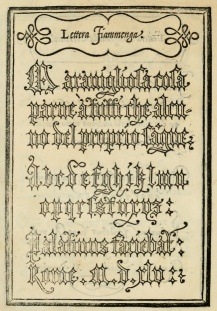 Lettera Fiammenga.
Marauigliosa cosa
parue à tutti che alcu
no del proprio sãgue:
A b c d e f g h i k l m n
o p q r s t u r u z:
Palatinus faciebat:
Rome. M. d. xlv: